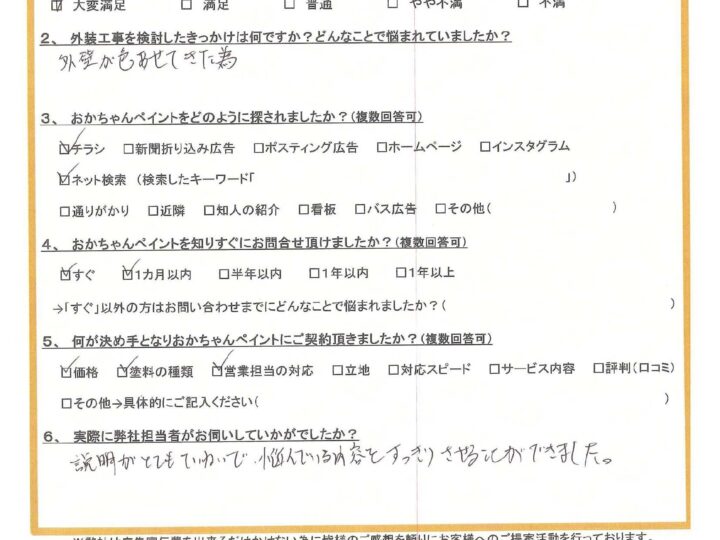 ☑ 大変満足 □ 満足 □ 普通 □ やや不満 □ 不満
2、 外装工事を検討したきっかけは何ですか？どんなことで悩まれていましたか？
外壁が色あせてきた為
3、 おかちゃんペイントをどのように探されましたか？(複数回答可)
☑チラシ □新聞折り込み広告 □ポスティング広告 □ホームページ □インスタグラム
☑ネット検索 (検索したキーワード「 」)
□通りがかり □近隣 □知人の紹介 □看板 □バス広告 □その他( )
4、 おかちゃんペイントを知りすぐにお問合せ頂けましたか？(複数回答可)
☑すぐ ☑1カ月以内 □半年以内 □1年以内 □1年以上
→「すぐ」以外の方はお問い合わせまでにどんなことで悩まれましたか？( )
5、 何が決め手となりおかちゃんペイントにご契約頂きましたか？(複数回答可)
☑価格 ☑塗料の種類 ☑営業担当の対応 □立地 □対応スピード □サービス内容 □評判(口コミ)
□その他→具体的にご記入ください( )
6、 実際に弊社担当者がお伺いしていかがでしたか？
説明がとてもていねいで、悩んでいる内容をすっきりさせることができました。